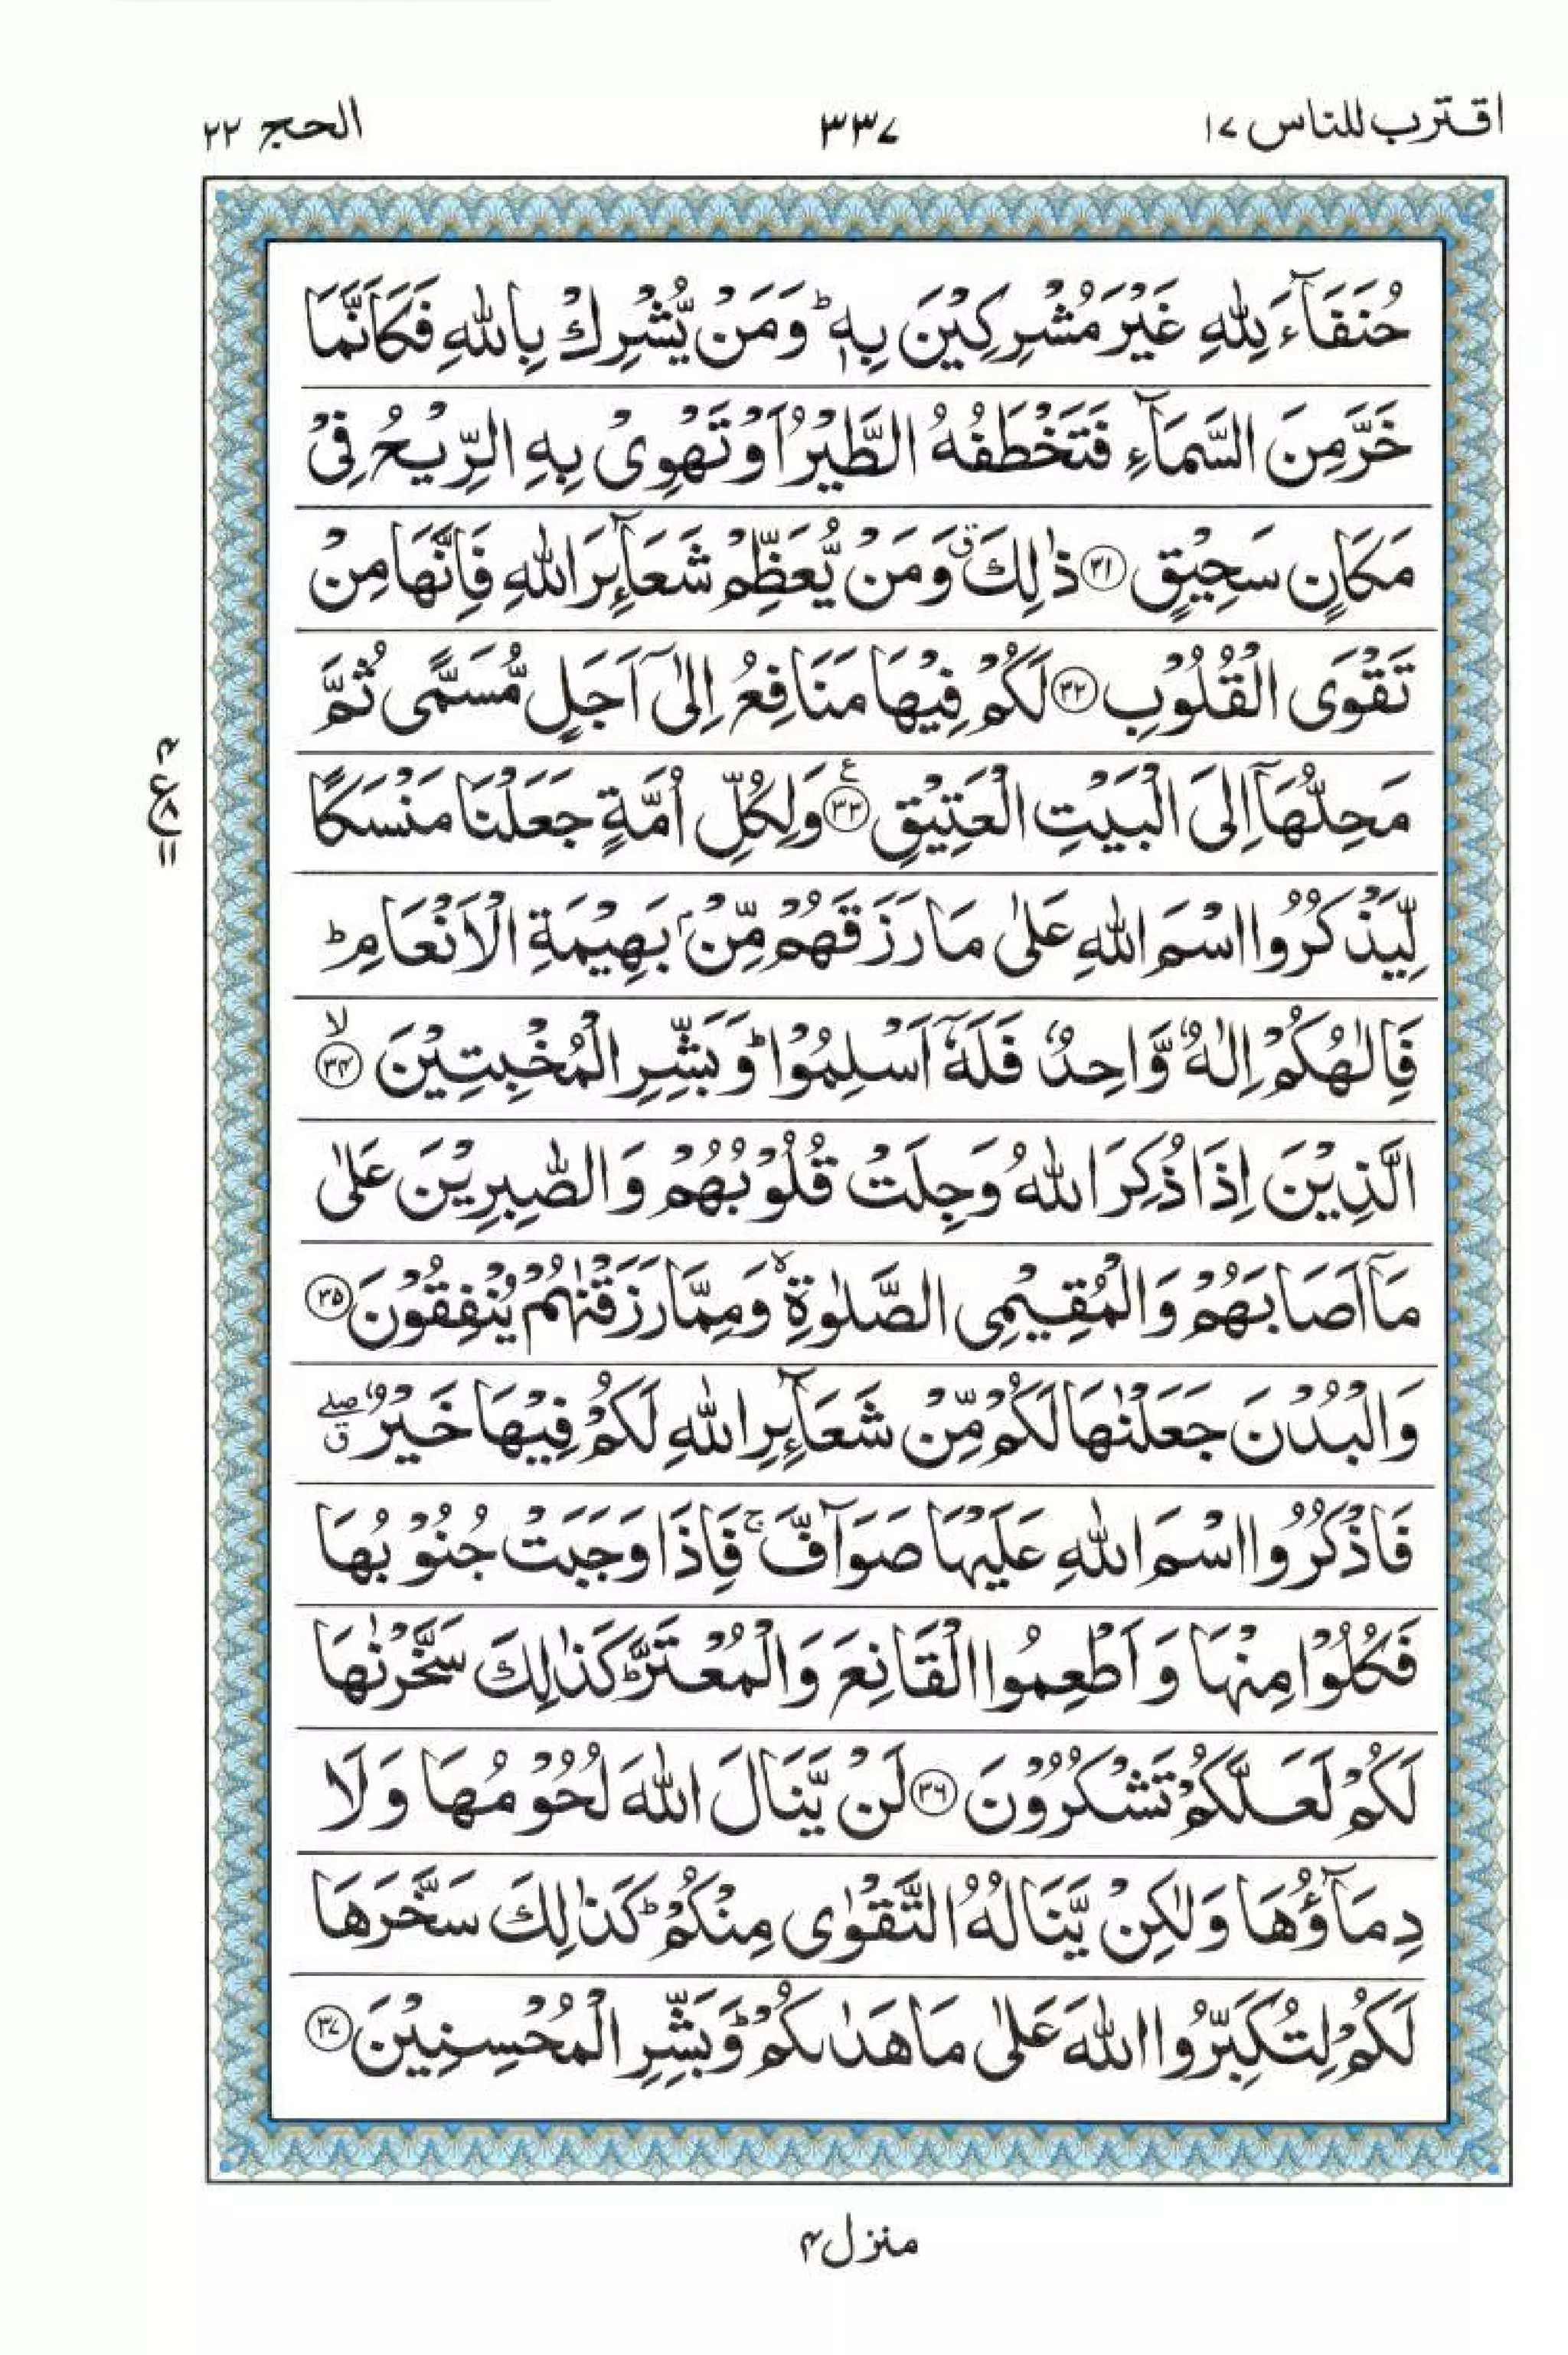 اقترب للناس ۱۷
۳۳۷
الحج ۲۲
حُنَفَآءَ لِلّٰهِ غَيْرَ مُشْرِكِيْنَ بِهٖ ؕ وَمَنْ يُّشْرِكْ بِاللّٰهِ فَكَاَنَّمَا
خَرَّ مِنَ السَّمَآءِ فَتَخْطَفُهُ الطَّيْرُ اَوْ تَهْوِىْ بِهِ الرِّيْحُ فِىْ
مَكَانٍ سَحِيْقٍ ۝۳۱ ذٰلِكَ ۗ وَمَنْ يُّعَظِّمْ شَعَآئِرَ اللّٰهِ فَاِنَّهَا مِنْ
تَقْوَى الْقُلُوْبِ ۝۳۲ لَكُمْ فِيْهَا مَنَافِعُ اِلٰٓى اَجَلٍ مُّسَمًّى ثُمَّ
مَحِلُّهَآ اِلَى الْبَيْتِ الْعَتِيْقِ ۝۳۳ ع وَلِكُلِّ اُمَّةٍ جَعَلْنَا مَنْسَكًا
لِّيَذْكُرُوا اسْمَ اللّٰهِ عَلٰى مَا رَزَقَهُمْ مِّنْۢ بَهِيْمَةِ الْاَنْعَامِ ؕ
فَاِلٰهُكُمْ اِلٰهٌ وَّاحِدٌ فَلَهٗۤ اَسْلِمُوْا ؕ وَبَشِّرِ الْمُخْبِتِيْنَ ۝۳۴ لا
الَّذِيْنَ اِذَا ذُكِرَ اللّٰهُ وَجِلَتْ قُلُوْبُهُمْ وَالصّٰبِرِيْنَ عَلٰى
مَآ اَصَابَهُمْ وَالْمُقِيْمِى الصَّلٰوةِ ۙ وَمِمَّا رَزَقْنٰهُمْ يُنْفِقُوْنَ ۝۳۵
وَالْبُدْنَ جَعَلْنٰهَا لَكُمْ مِّنْ شَعَآئِرِ اللّٰهِ لَكُمْ فِيْهَا خَيْرٌ ۖ ق
فَاذْكُرُوا اسْمَ اللّٰهِ عَلَيْهَا صَوَآفَّ ۚ فَاِذَا وَجَبَتْ جُنُوْبُهَا
فَكُلُوْا مِنْهَا وَاَطْعِمُوا الْقَانِعَ وَالْمُعْتَرَّ ؕ كَذٰلِكَ سَخَّرْنٰهَا
لَكُمْ لَعَلَّكُمْ تَشْكُرُوْنَ ۝۳۶ لَنْ يَّنَالَ اللّٰهَ لُحُوْمُهَا وَلَا
دِمَآؤُهَا وَلٰكِنْ يَّنَالُهُ التَّقْوٰى مِنْكُمْ ؕ كَذٰلِكَ سَخَّرَهَا
لَكُمْ لِتُكَبِّرُوا اللّٰهَ عَلٰى مَا هَدٰىكُمْ ؕ وَبَشِّرِ الْمُحْسِنِيْنَ ۝۳۷
منزل ۴